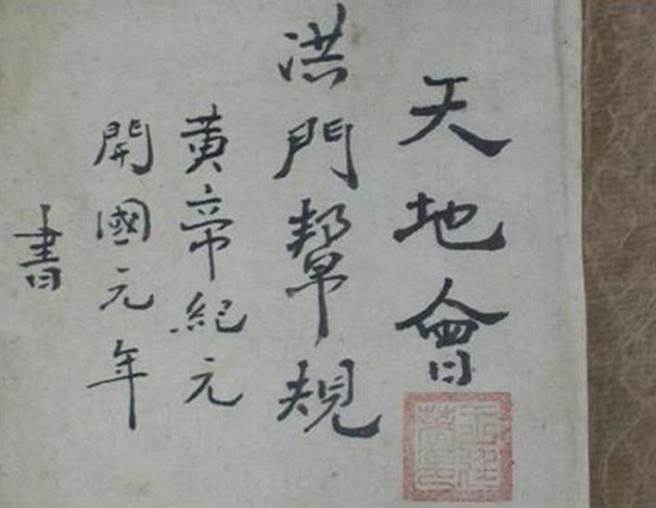 天地會
洪門幫規
黃帝紀元
開國元年
書